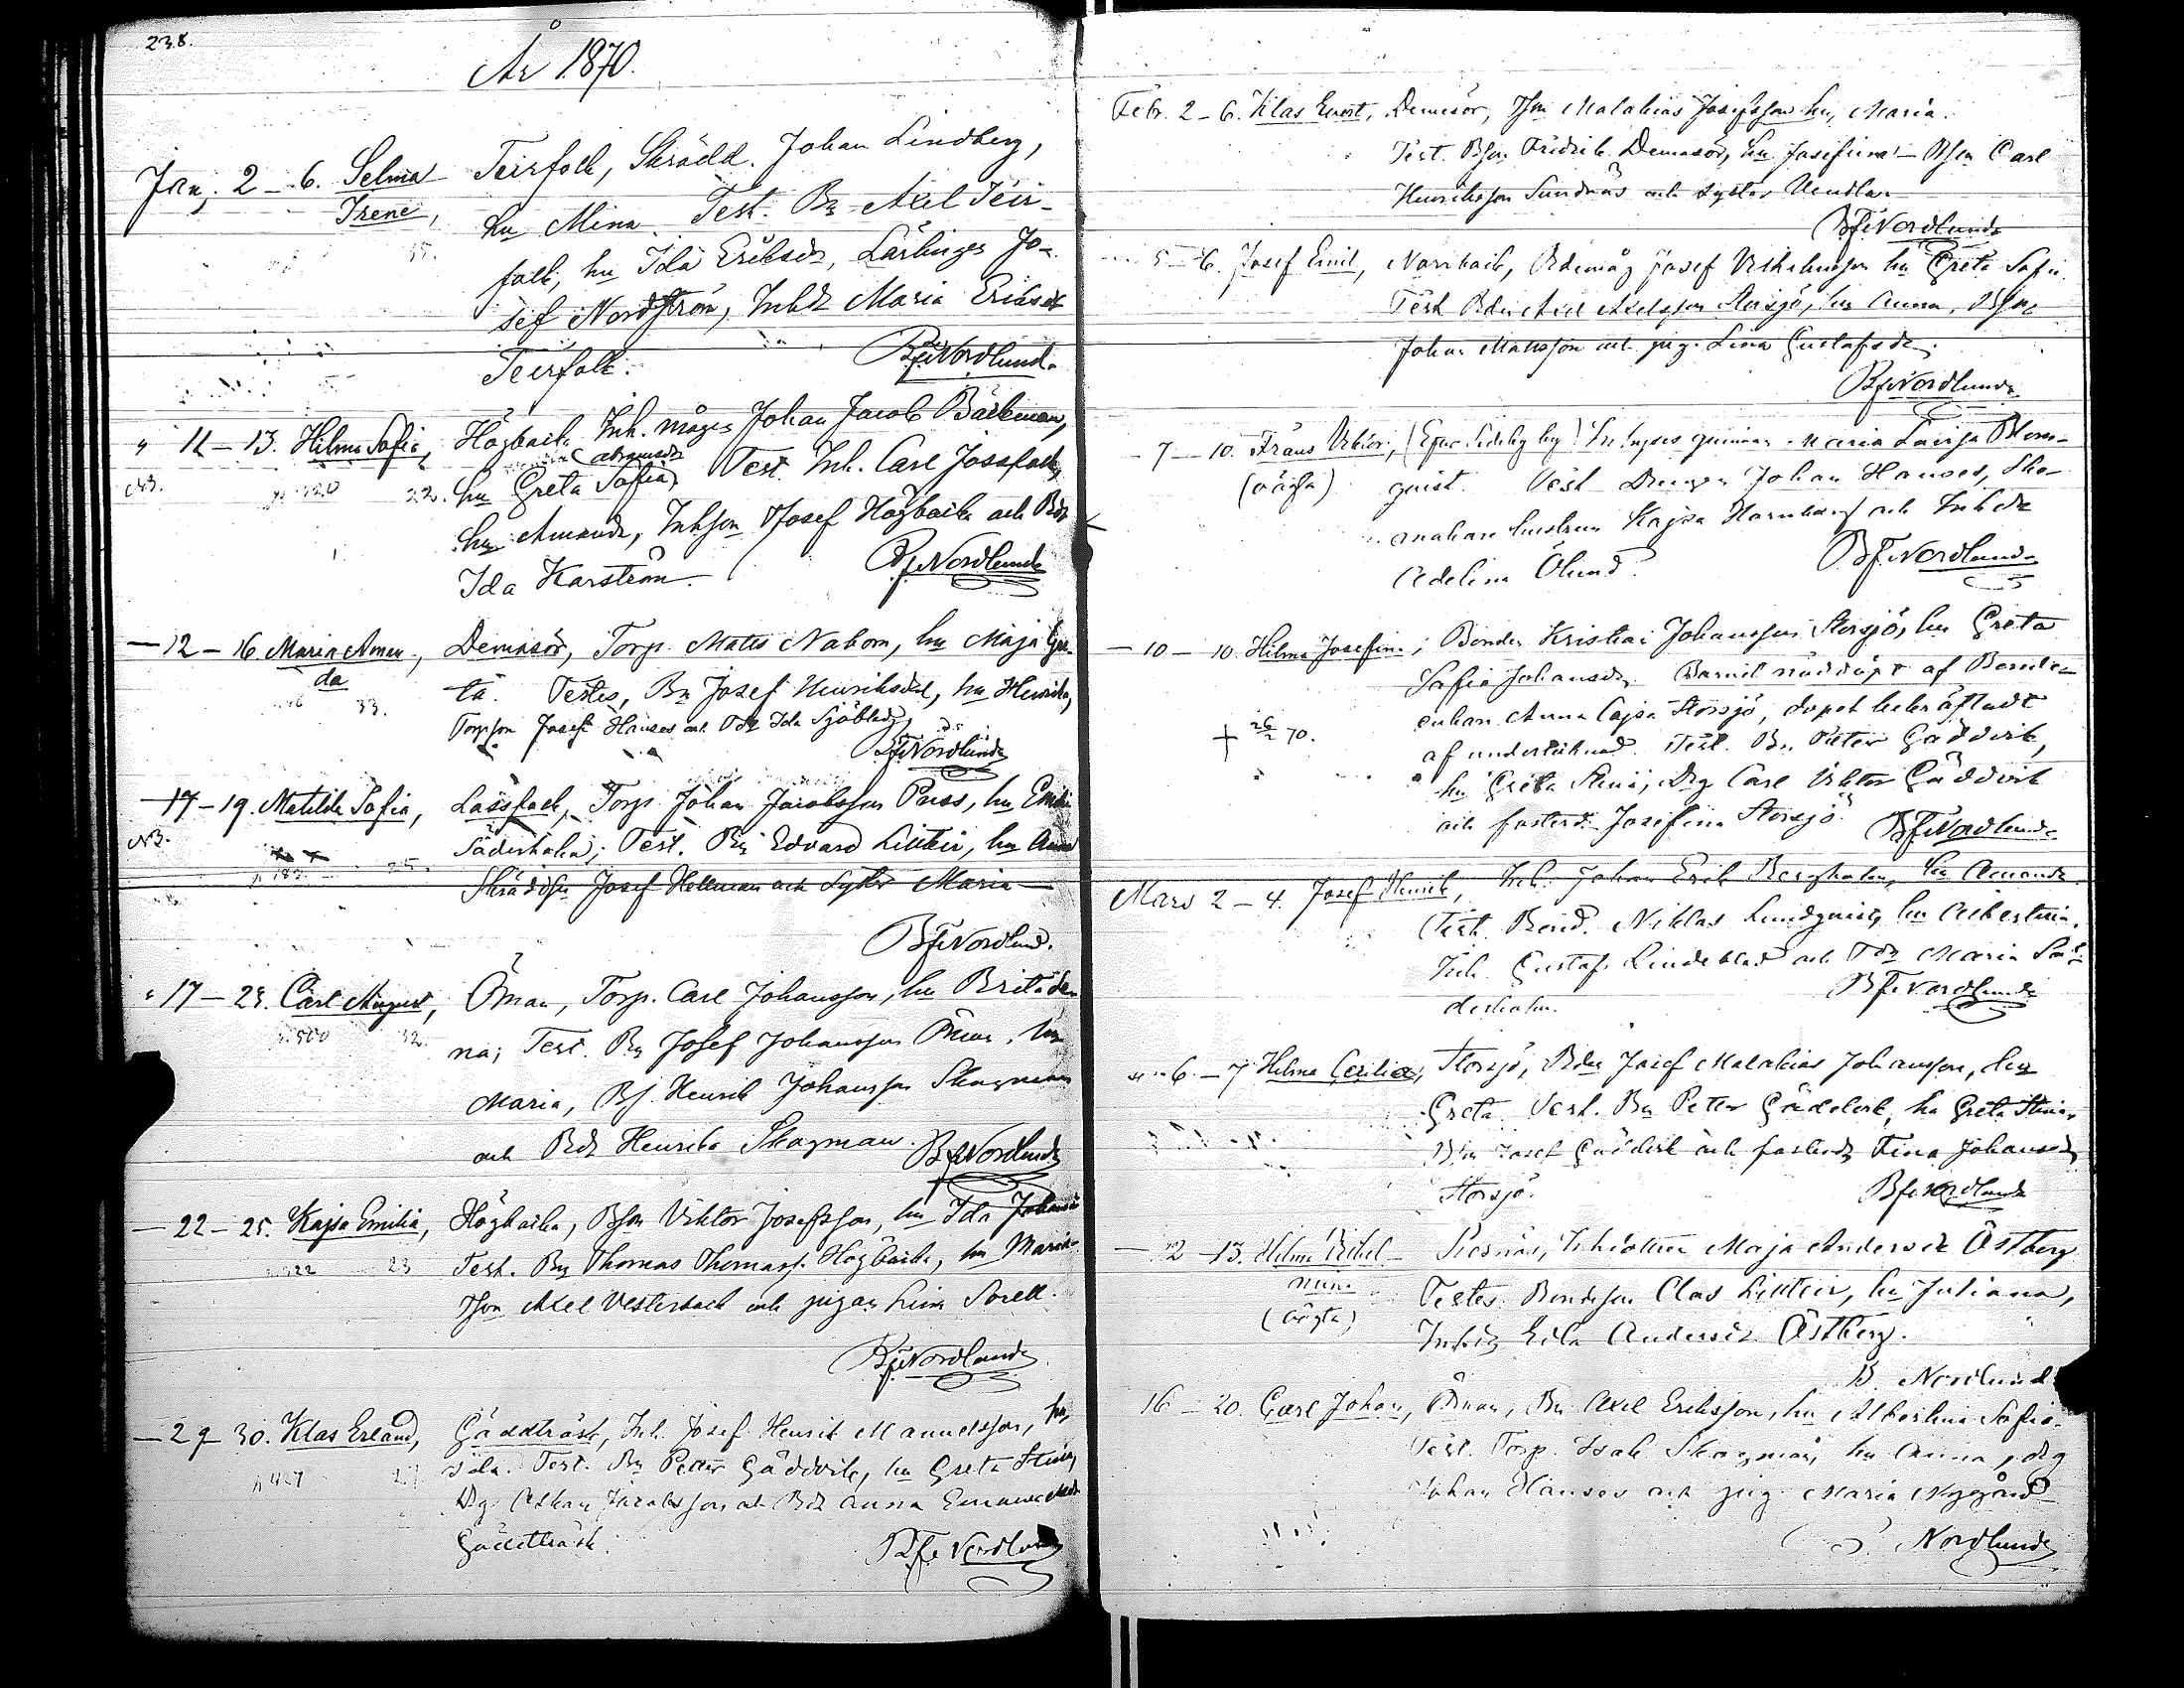 238.
År 1870.
Jan. 2 - 6. Selma Teirfolk, Skrädd. Johan Lindberg,
Irene, hu Mina. Test. Bn Axel Teir-
folk, hu Ida Eriksdr, Lärlingen Jo-
sef Nordström, Inhdr Maria Eriksdr
Teirfolk. BfeNordlund.
" 11 - 13. Hilma Sofia, Högbacka Inh. mågen Johan Jacob Bäckman,
NB. 22. hu Greta Sofia Abramsdr Test. Inh. Carl Jossfolk,
hu Amanda, Inhson Josef Högbacka och Bdr
Ida Karström. BfeNordlund
— 12 - 16. Maria Aman- Demasör, Torp. Matts Nabom, hu Maja Gre-
da 33. ta. Testes, Bn Josef Henriksson, hu Henrika,
Torpson Josef Hanses och Tdr Ida Sjöblad
BfeNordlund
— 17 - 19. Matilda Sofia, Lassfolk, Torp. Johan Jacobsson Puss, hu Emili
NB. 25. Söderholm; Test. Bn Edvard Lillteir, hu Anna
Skräddsn Josef Hellman och Syster Maria
BfeNordlund.
" 17 - 23. Carl August, Öman, Torp. Carl Johansson, hu Brita Le-
500 32. na; Test. Bn Josef Johansson Öman, hu
Maria, Bs. Henrik Johansson Skogman
och Bdr Henrika Skogman. BfeNordlund
— 22 - 25. Kajsa Emilia, Högbacka, Bson Viktor Josefsson, hu Ida Johansdr
322 23 Test. Bn Thomas Thomass. Högbacka, hu Maria
Tson Axel Vesterback och pigan Lina Sorell.
BfeNordlund
— 29 - 30. Klas Erland, Gäddträsk, Inh. Josef Henrik Manuelsson, hu
427 27 Ida. Test. Bn Petter Gäddvik, hu Greta Stina,
Dg. Oskar Jacobsson och Bdr Anna Emanuelsdr
Gäddträsk. Bfe Nordlund
Febr. 2 - 6. Klas Evert, Demasör, Tson Malakias Josefsson hu, Maria.
Test. Bson Fredrik Demasör, hu Josefina - Bson Carl
Henriksson Sundnäs och syster Vendla.
BfeNordlund
5 - 6. Josef Emil, Norrback, Bdemåg Josef Vilhelmsson hu Greta Sofia
Test Bden Axel Axelsson Storsjö, hu Anna, Bson
Johan Mattsson och pig. Lina Gustafsdr.
BfeNordlund
- 7 - 10. Frans Viktor, Inhyses qvinnan Maria Lovisa Blom-
(oäkta) qvist. Test Drengen Johan Hanses, Sko-
makare hustrun Kajsa Hornberg och Inhdr
Adelina Ölund. BfeNordlund
— 10 - 10. Hilma Josefina, Bonden Kristian Johansson Storsjö, hu Greta
Sofia Johansdr. Barnet nöddöpt af Bonde-
enkan Anna Cajsa Storsjö, dopet bekräftadt
+ 26/2 70. af undertecknad. Test. Bn Petter Gäddvik,
hu Greta Stina, Dg Carl Viktor Gäddvik
och fosterd. Josefina Storsjö. BfeNordlund
Mars 2 - 4. Josef Henrik, Inh. Johan Erik Bergholm, hu Amanda
Test. Bond. Niklas Lundqvist, hu Albertina.
Inh. Gustaf Lindeblad och Tdr Maria Sö-
derholm. BfeNordlund
" 6. - 7 Hilma Cecilia, Storsjö, Bden Josef Malakias Johansson, hu
Greta. Test. Bn Petter Gäddvik, hu Greta Stina,
Bsn Josef Gäddvik och fosterdr Fina Johansdr
Storsjö. BfeNordlund
— 12 - 13. Hilma Vilhel- Inhdottren Maja Andersdr Östberg
mina Testes. Bondeson Clas Lillteir, hu Juliana,
(oägta) Inhdr Eda Andersdr Östberg.
B Nordlund
16 - 20. Carl Johan, Öman, Bn Axel Eriksson, hu Albertina Sofia.
Test. Torp. Isak Skogman, hu Anna, dg
Johan Hanses och pig. Maria Nygård
Nordlund